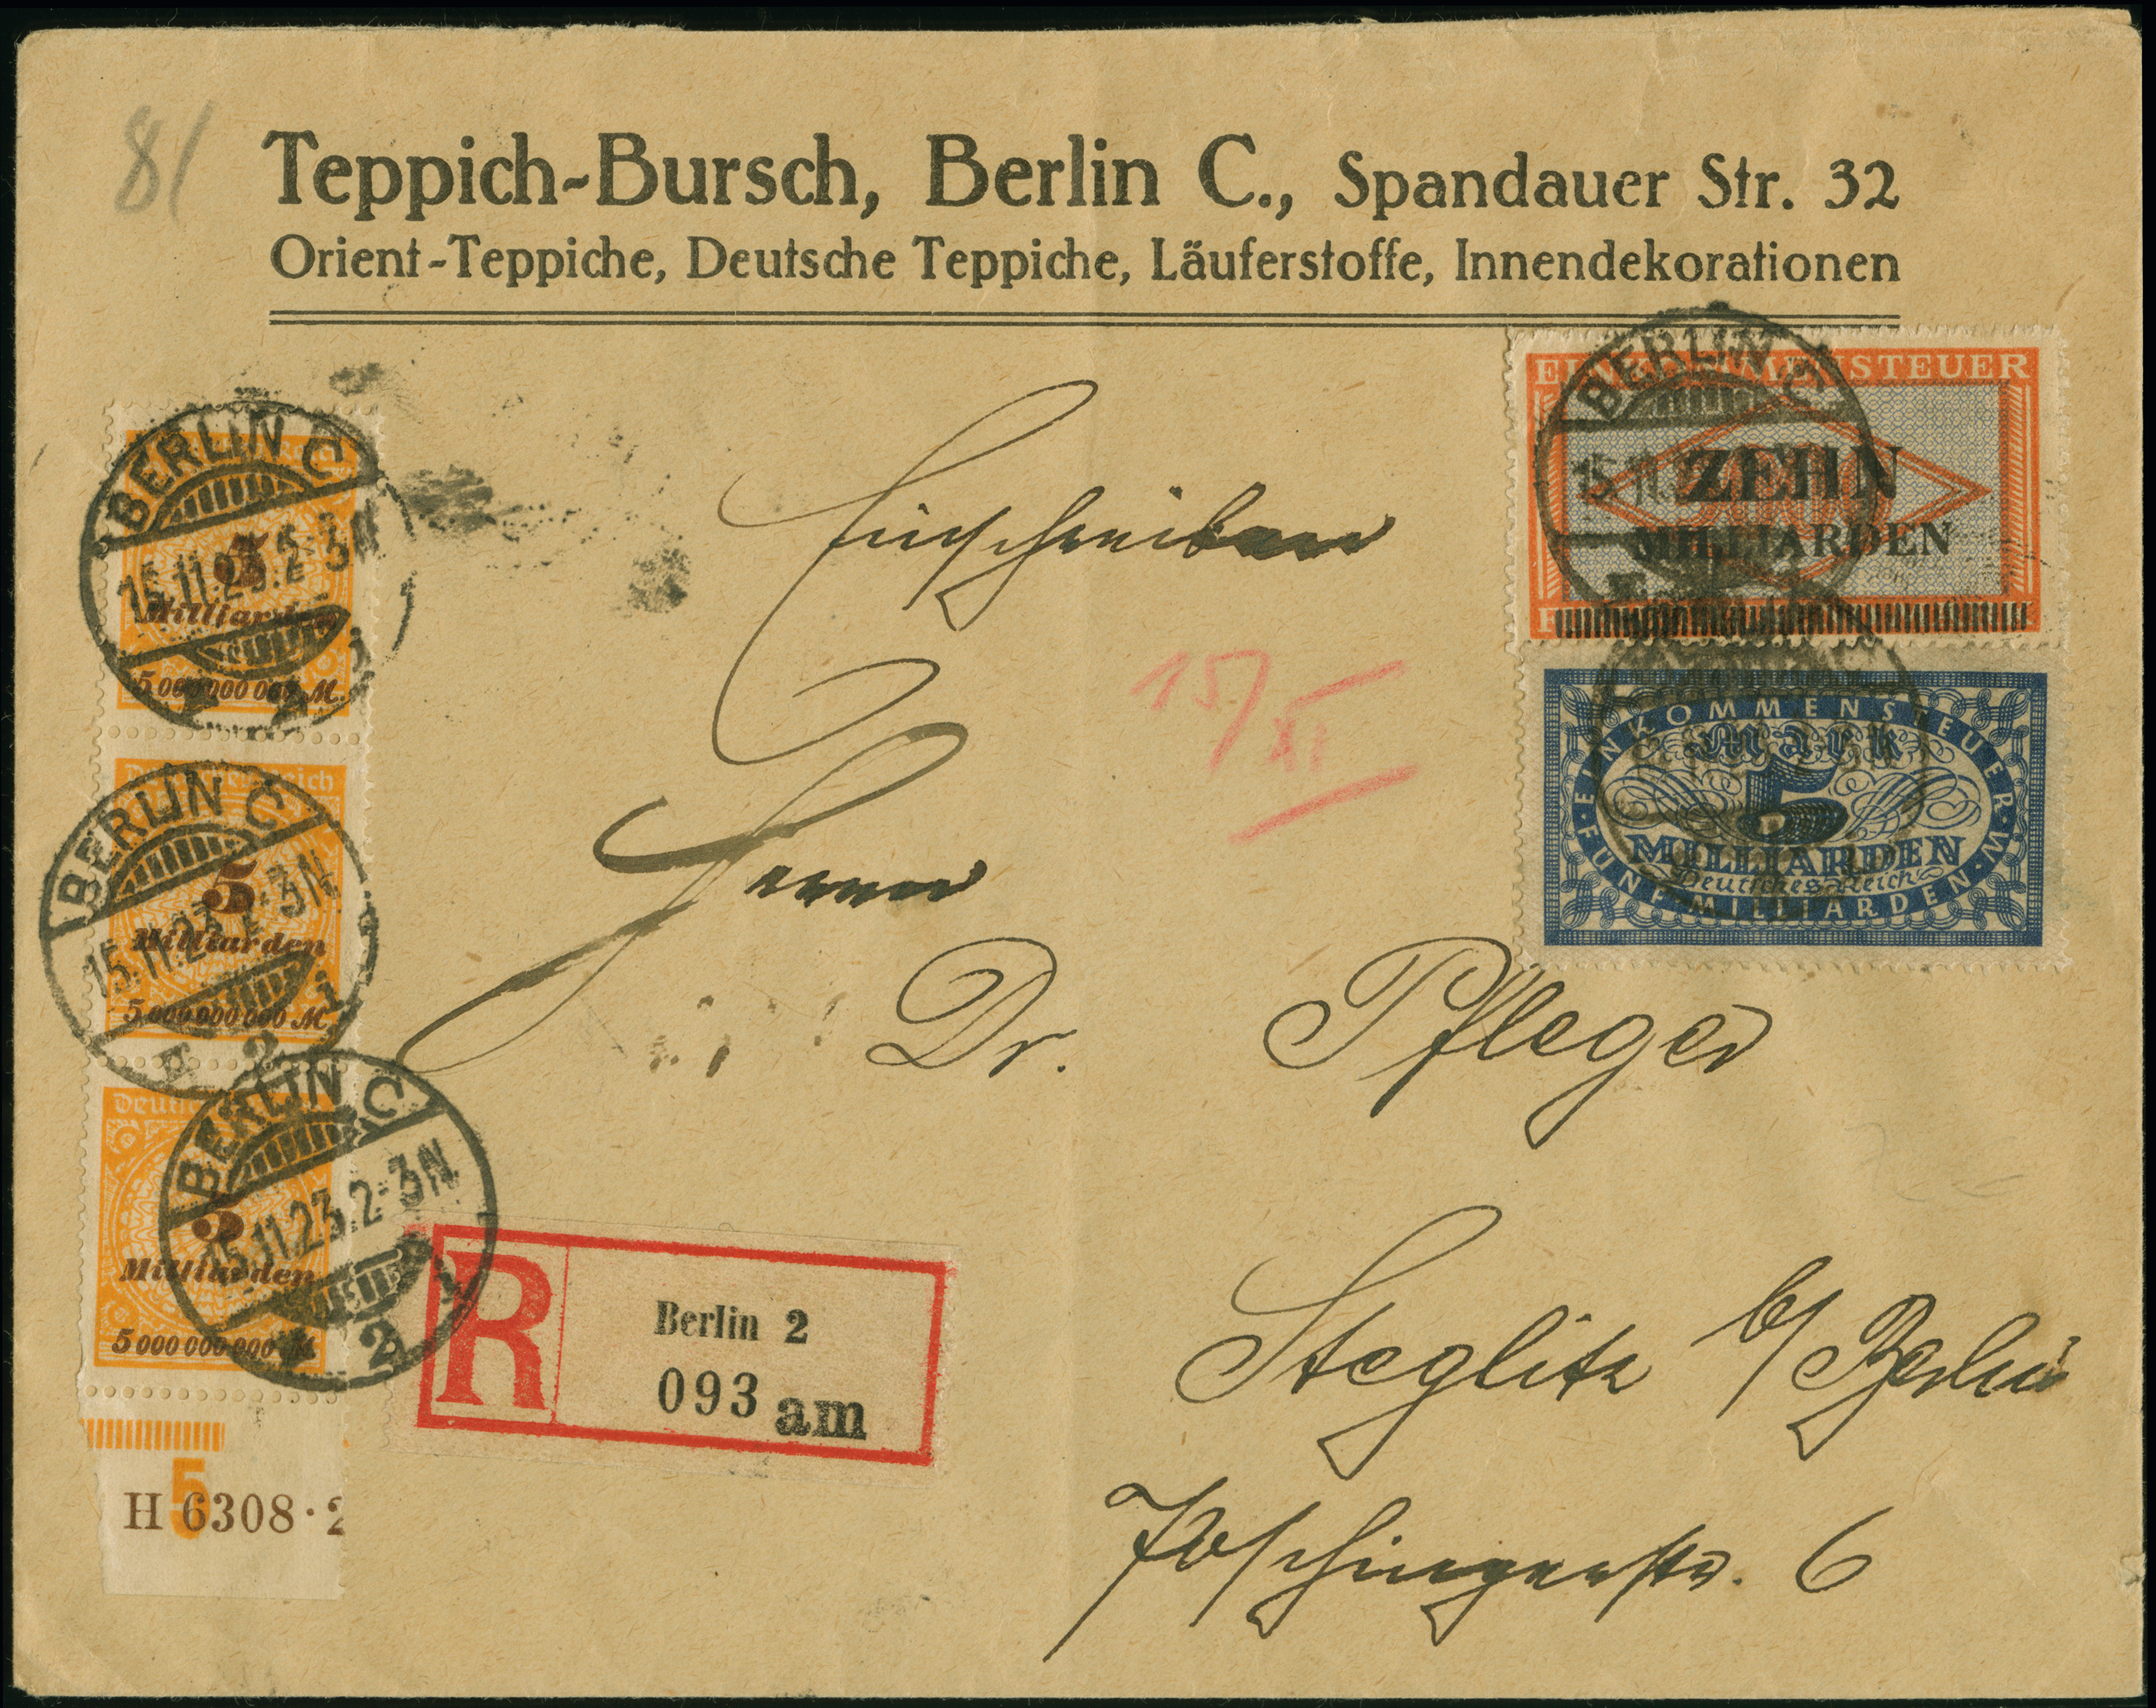 81
Teppich-Bursch, Berlin C., Spandauer Str. 32
Orient-Teppiche, Deutsche Teppiche, Läuferstoffe, Innendekorationen
BERLIN C
15.11.23.2-3N
5
Milliarden
5 000 000 000 M.
BERLIN C
15.11.23.2-3N
Deutsches Reich
5
Milliarden
5 000 000 000 M.
2
BERLIN C
15.11.23.2-3N
5
Milliarden
5 000 000 000 M.
2
5
H 6308·2
BERLIN C
15.11.
EINKOMMENSTEUER
ZEHN
MILLIARDEN
EINKOMMENSTEUER·W·
Mark
5
MILLIARDEN
Deutsches Reich
FÜNF·MILLIARDEN
Einschreiben
15/XI
Herrn
Dr. Pfleger
Steglitz b/Berlin
Poschingerstr. 6
R
Berlin 2
093 am